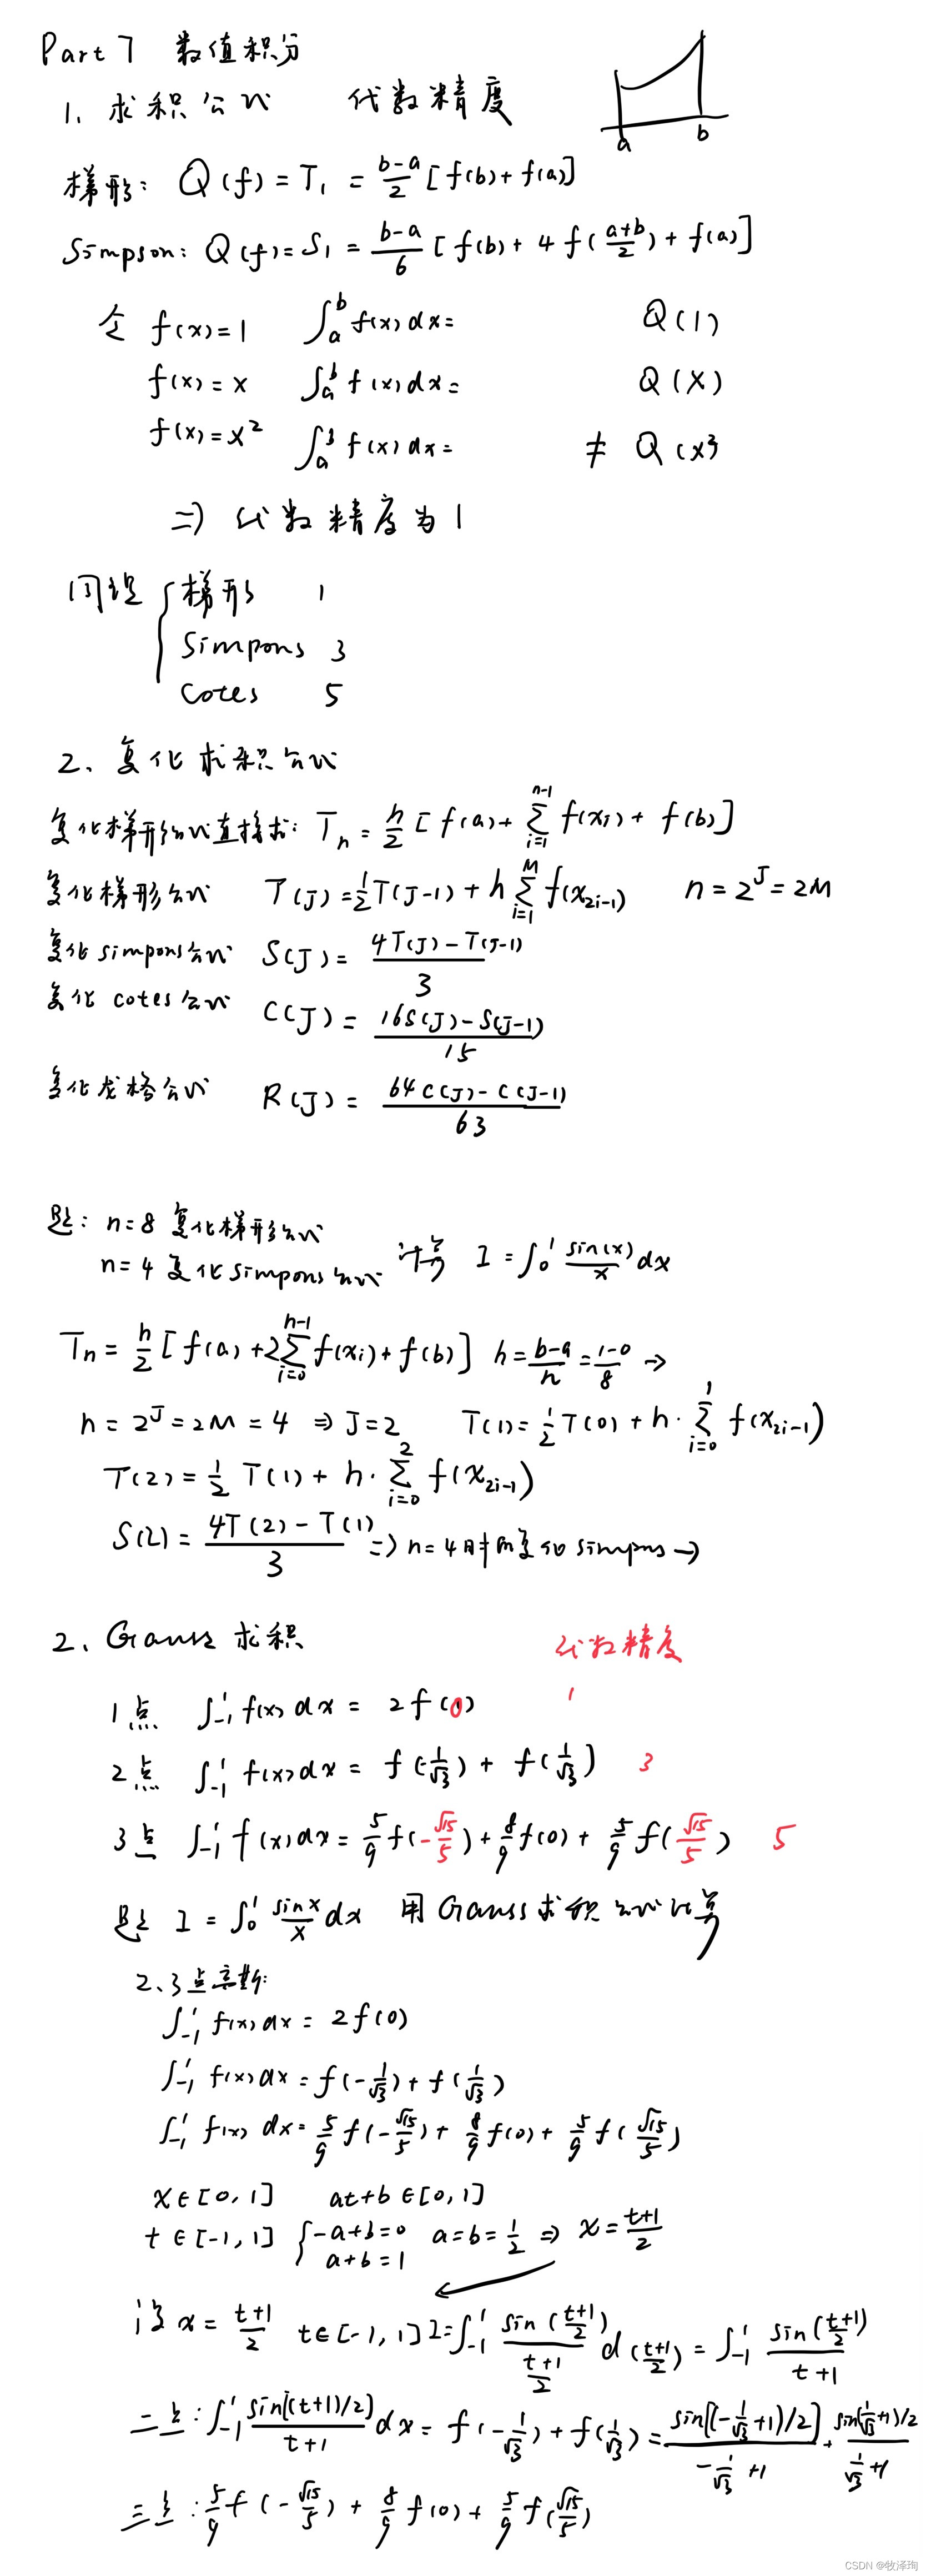 Part 7 数值积分
1. 求积公式 代数精度
a b
梯形: Q(f) = T₁ = (b-a)/2 [f(b) + f(a)]
Simpson: Q(f) = S₁ = (b-a)/6 [f(b) + 4f((a+b)/2) + f(a)]
令 f(x)=1 ∫_a^b f(x)dx = Q(1)
f(x)=x ∫_a^b f(x)dx = Q(x)
f(x)=x² ∫_a^b f(x)dx = ≠ Q(x²)
⇒ 代数精度为1
同理 { 梯形 1
Simpons 3
Cotes 5
2. 复化求积公式
复化梯形公式直接求: T_n = h/2 [f(a) + ∑_{i=1}^{n-1} f(x_i) + f(b)]
复化梯形公式 T(J) = 1/2 T(J-1) + h ∑_{i=1}^{M} f(x_{2i-1}) n = 2^J = 2M
复化simpons公式 S(J) = (4T(J) - T(J-1))/3
复化cotes公式 C(J) = (16S(J) - S(J-1))/15
复化龙格公式 R(J) = (64C(J) - C(J-1))/63
题: n=8 复化梯形公式
n=4 复化simpons公式 计算 I = ∫_0^1 sin(x)/x dx
T_n = h/2 [f(a) + 2∑_{i=0}^{n-1} f(x_i) + f(b)] h = (b-a)/n = (1-0)/8 →
n = 2^J = 2M = 4 ⇒ J=2 T(1) = 1/2 T(0) + h·∑_{i=0}^{1} f(x_{2i-1})
T(2) = 1/2 T(1) + h·∑_{i=0}^{2} f(x_{2i-1})
S(2) = (4T(2) - T(1))/3 ⇒ n=4时的复化simpons →
2. Gauss 求积 代数精度
1点 ∫_{-1}^1 f(x)dx = 2f(0) 1
2点 ∫_{-1}^1 f(x)dx = f(-1/√3) + f(1/√3) 3
3点 ∫_{-1}^1 f(x)dx = 5/9 f(-√15/5) + 8/9 f(0) + 5/9 f(√15/5) 5
题 I = ∫_0^1 sinx/x dx 用Gauss求积公式计算
2、3点高斯:
∫_{-1}^1 f(x)dx = 2f(0)
∫_{-1}^1 f(x)dx = f(-1/√3) + f(1/√3)
∫_{-1}^1 f(x)dx = 5/9 f(-√15/5) + 8/9 f(0) + 5/9 f(√15/5)
x∈[0,1] at+b∈[0,1]
t∈[-1,1] { -a+b=0 a+b=1 a=b=1/2 ⇒ x=(t+1)/2
设 x = (t+1)/2 t∈[-1,1] I = ∫_{-1}^1 sin((t+1)/2)/((t+1)/2) d((t+1)/2) = ∫_{-1}^1 sin((t+1)/2)/(t+1)
二点: ∫_{-1}^1 sin[(t+1)/2]/(t+1) dx = f(-1/√3) + f(1/√3) = sin[(-1/√3+1)/2]/(-1/√3+1) + sin(1/√3+1)/2/(1/√3+1)
三点: 5/9 f(-√15/5) + 8/9 f(0) + 5/9 f(√15/5)
CSDN @牧泽珣